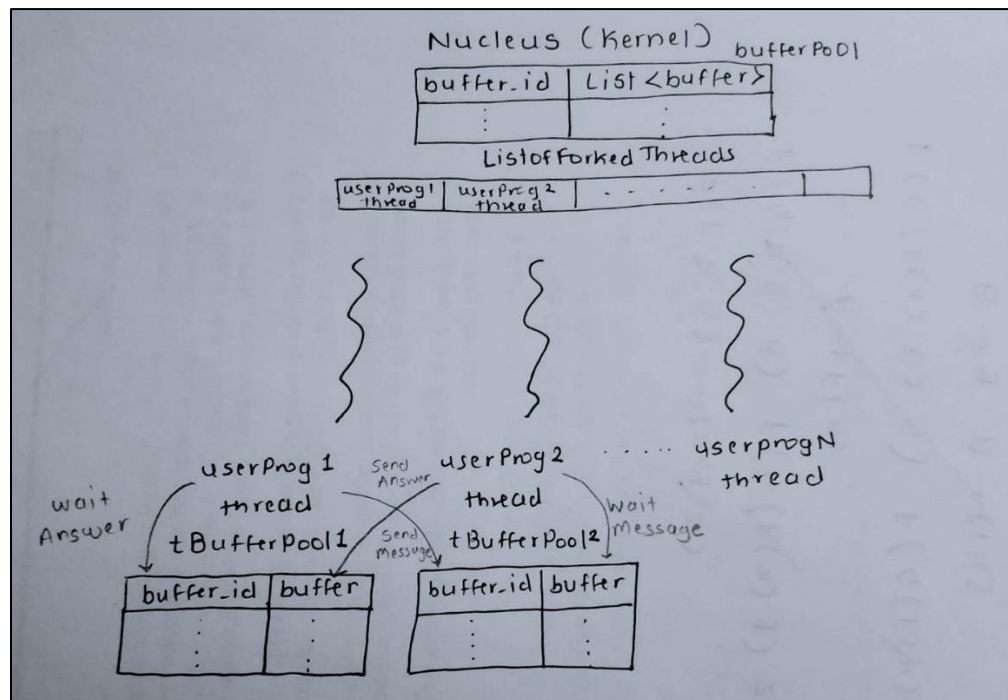 Nucleus (Kernel)
bufferPool
buffer_id List <buffer>
List of Forked Threads
userProg1 thread
userProg2 thread
userProg 1 thread
tBufferPool1
userProg2 thread
tBufferPool2
userprogN thread
wait Answer
Send Answer
Send Message
wait Message
buffer_id buffer
buffer_id buffer